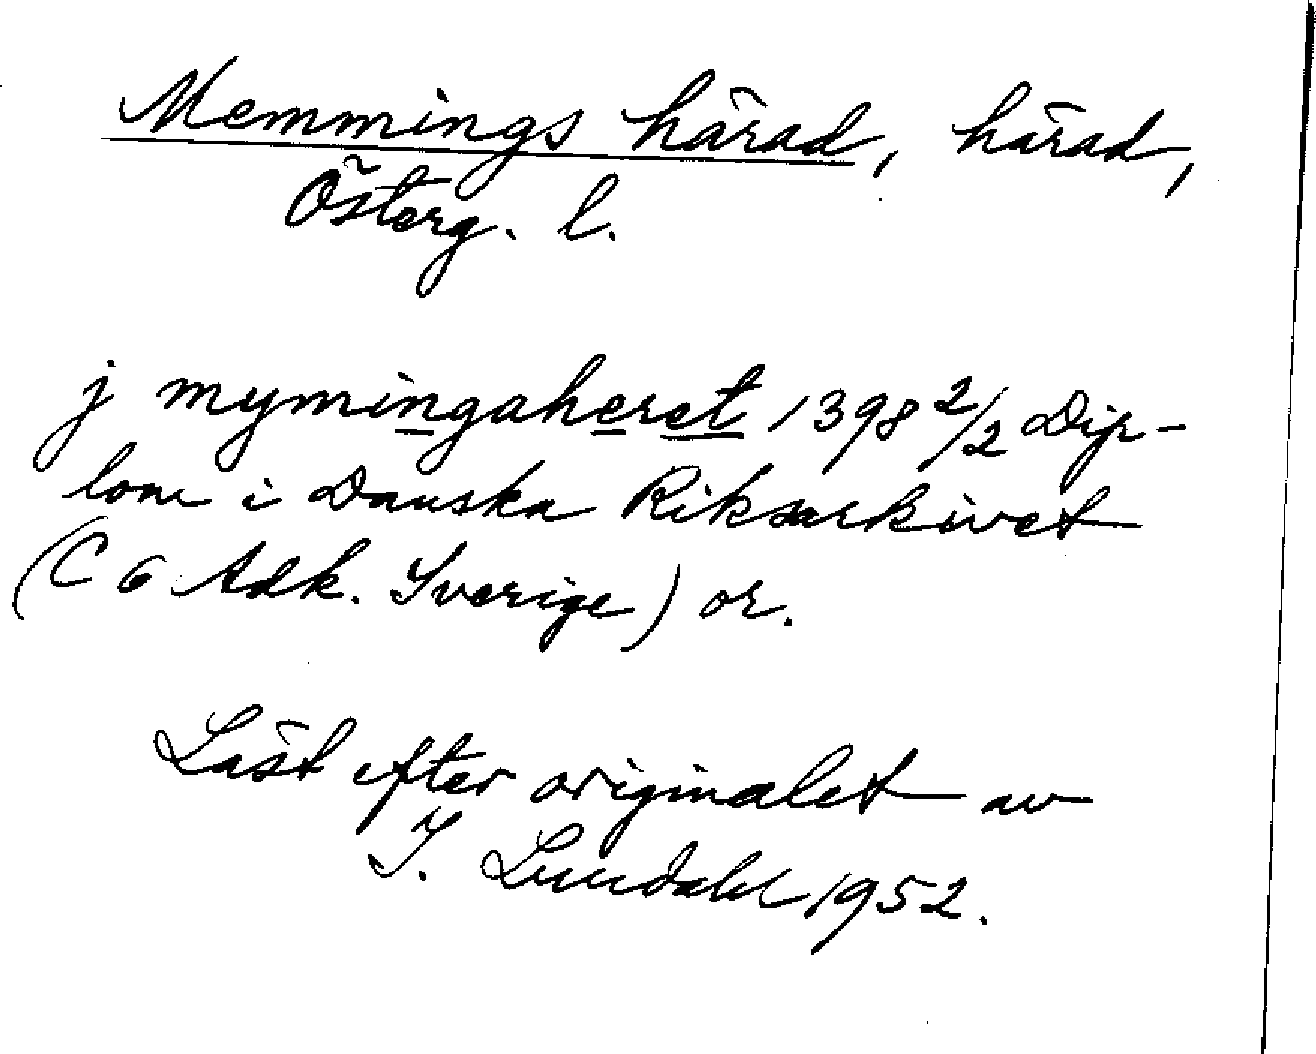 Memmings härad, härad,
Österg. l.
j mymingaheret 1398 2/2 Dip-
lom i Danska Riksarkivet
(C 6 Adk. Sverige) or.
Läst efter originalet av
I. Lundahl 1952.